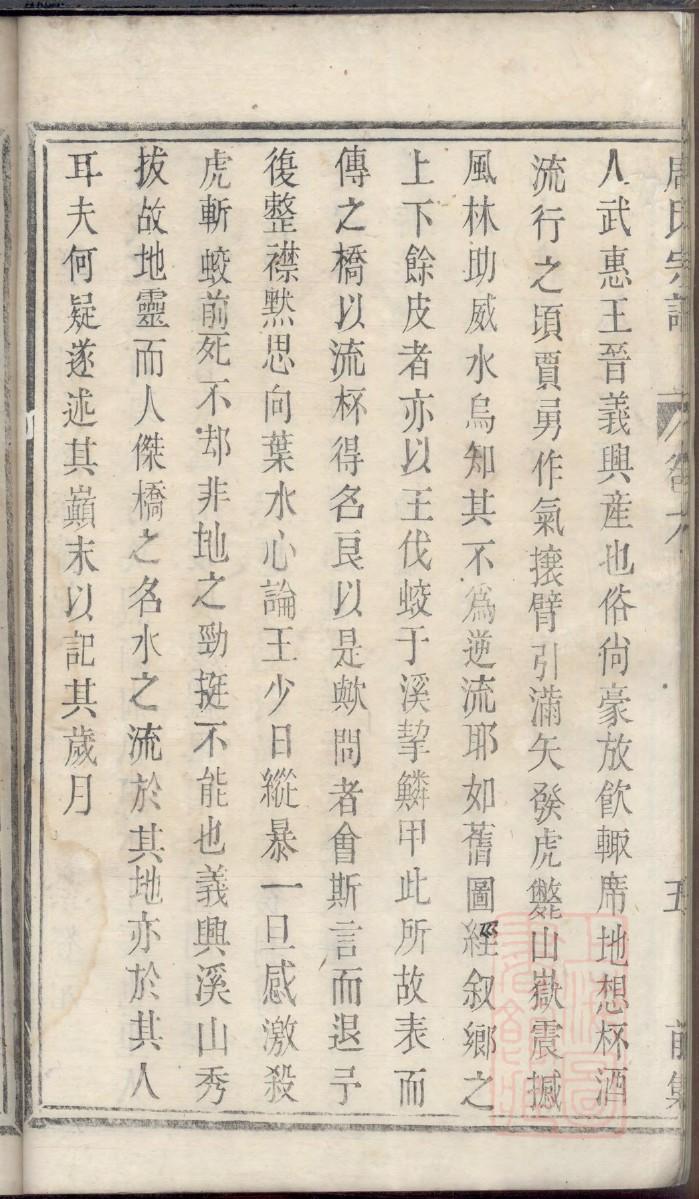 周氏宗譜 卷六 五 前集
人武惠王晉義興産也俗尚豪放飲輙席地想杯酒
流行之頃賈勇作氣攘臂引滿矢發虎斃山嶽震撼
風林助威水烏知其不爲逆流耶如舊圖經叙鄉之
上下餘皮者亦以王伐蛟于溪挈鱗甲此所故表而
傳之橋以流杯得名良以是歟問者會斯言而退予
復整襟默思向葉水心論王少日縱暴一旦感激殺
虎斬蛟前死不却非地之勁挺不能也義興溪山秀
拔故地靈而人傑橋之名水之流於其地亦於其人
耳夫何疑遂述其巔末以記其歲月